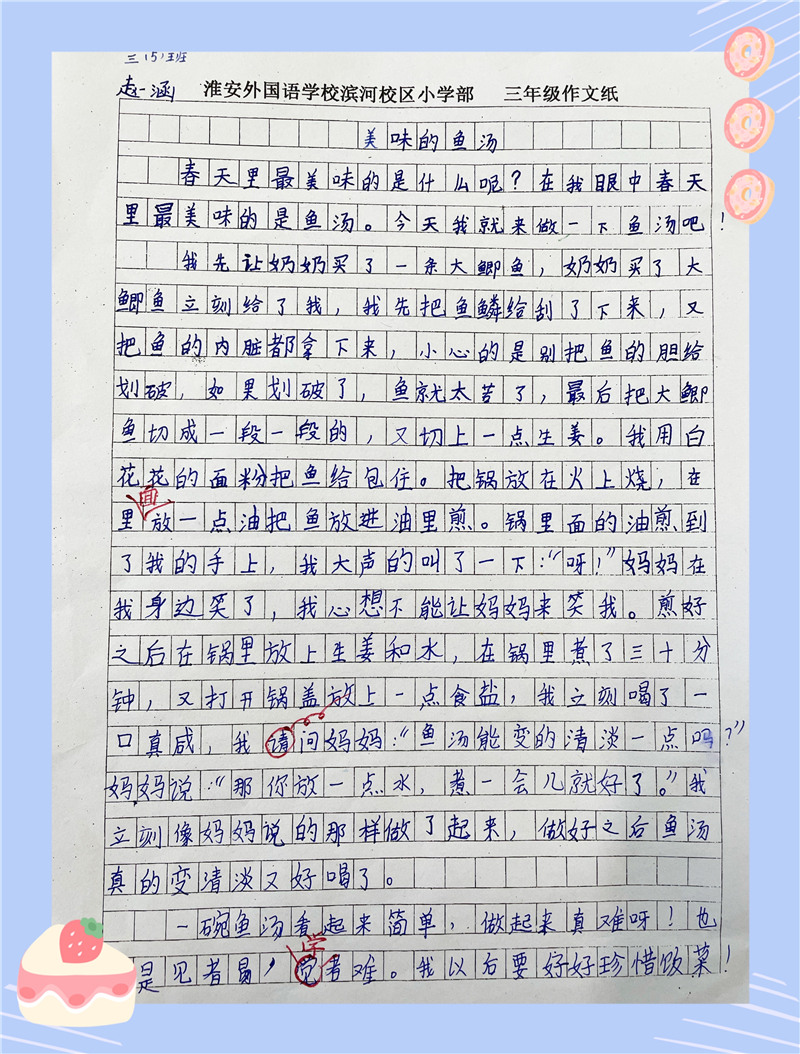 三(5)班
赵一涵 淮安外国语学校滨河校区小学部 三年级作文纸
美味的鱼汤
春天里最美味的是什么呢？在我眼中春天
里最美味的是鱼汤。今天我就来做一下鱼汤吧！
我先让奶奶买了一条大鲫鱼，奶奶买了大
鲫鱼立刻给了我，我先把鱼鳞给刮了下来，又
把鱼的内脏都拿下来，小心的是别把鱼的胆给
划破，如果划破了，鱼就太苦了，最后把大鲫
鱼切成一段一段的，又切上一点生姜。我用白
花花的面粉把鱼给包住。把锅放在火上烧，在
面
里放一点油把鱼放进油里煎。锅里面的油煎到
了我的手上，我大声的叫了一下：“呀！”妈妈在
我身边笑了，我心想不能让妈妈来笑我。煎好
之后在锅里放上生姜和水，在锅里煮了三十分
钟，又打开锅盖放上一点食盐，我立刻喝了一
口真咸，我请问妈妈：“鱼汤能变的清淡一点吗？”
妈妈说：“那你放一点水，煮一会儿就好了。”我
立刻像妈妈说的那样做了起来，做好之后鱼汤
真的变清淡又好喝了。
一碗鱼汤看起来简单，做起来真难呀！也
学
是见者易，觉者难。我以后要好好珍惜饭菜！